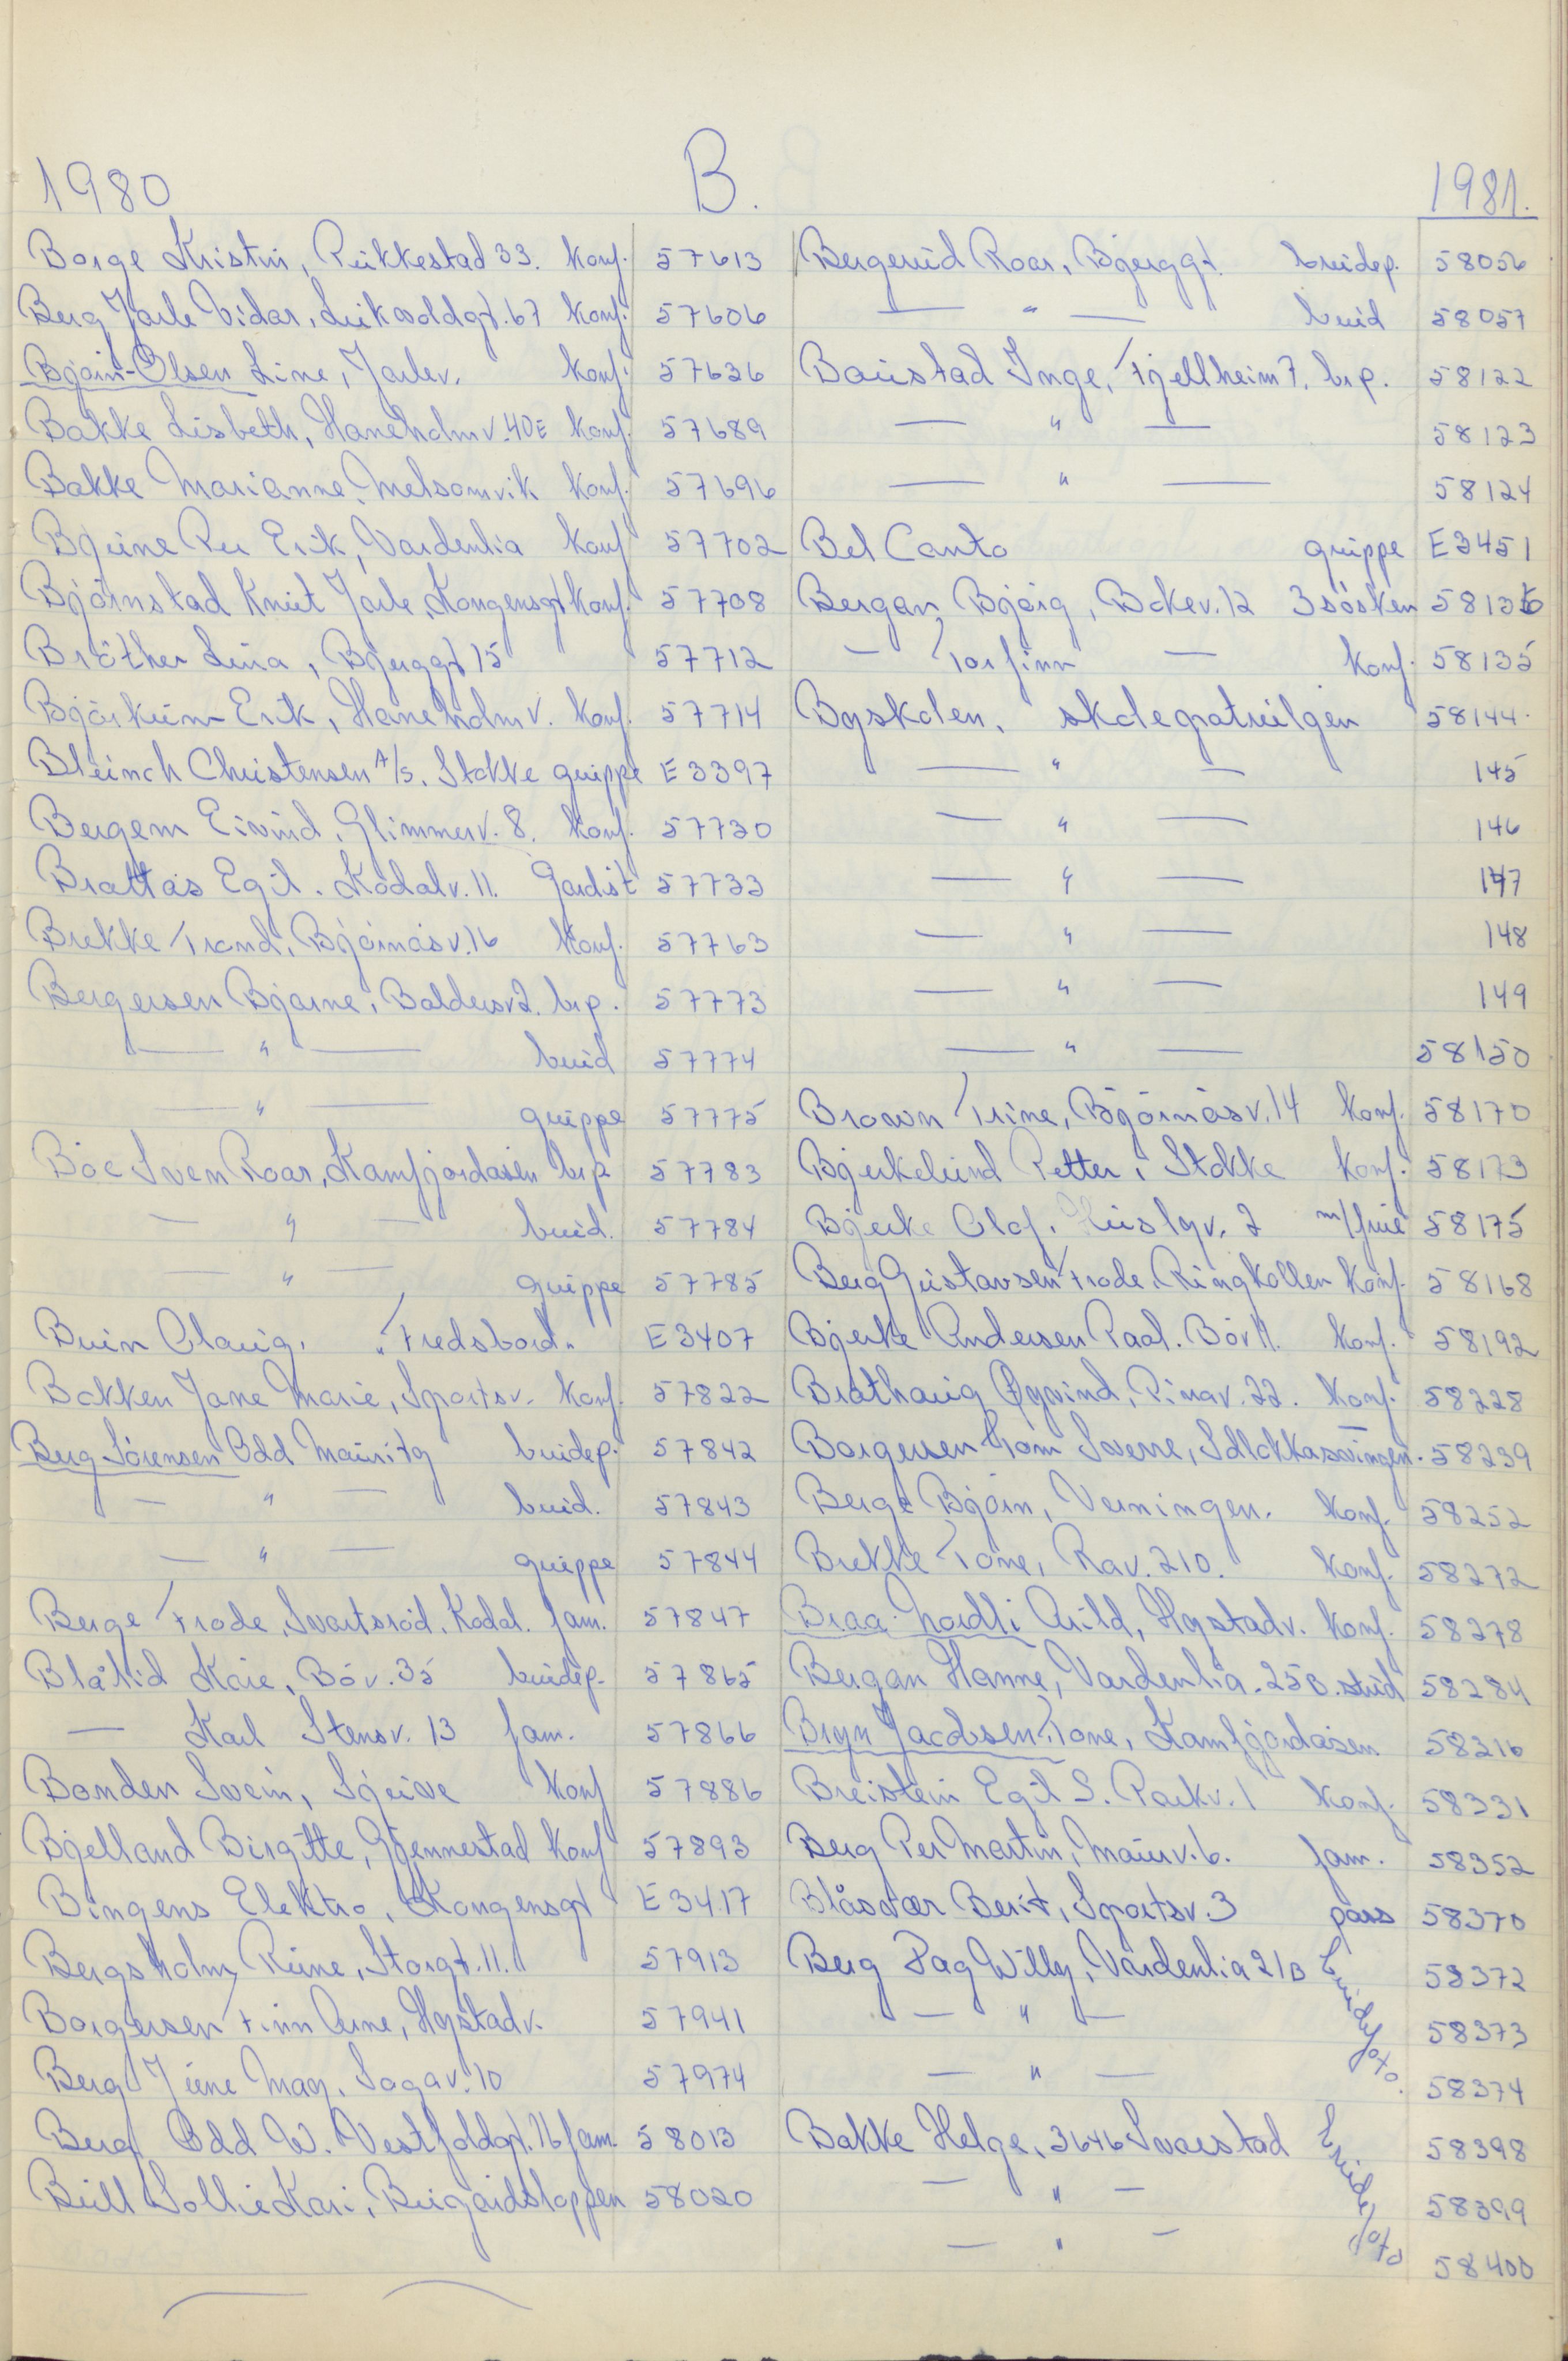 1980 B. 1981.
Borge Kristin, Rukkestad 33. Konf. 57613
Berg Jarle Vidar, konf. 57606
Bjørn-Olsen Line, Jarlev. Konf. 57636
Bakke Lisbeth, Haneholmv. 40E Konf. 57689
Bakke Marianne, Melsomvik Konf. 57696
Bjune Per Erik, Vardenlia Konf 57702
Björnstad Knut Jarle, Kongensgt Konf. 57708
Bröther Lina, Bjerggt 15 57712
Björkum Erik, Haneholmv. Konf. 57714
Christensen A/S. Stokke gruppe E3397
Bergem Eivind, Glimmerv. 8. Konf. 57730
Brattås Egil. Kodalv. 11. Gardist 57733
Brekke Trond, Björnåsv. 16 Konf. 57763
Bergersen Bjarne, Baldersv 2. br.p. 57773
— " — brud 57774
— " — gruppe 57775
Böe Sven Roar, Kamfjordåsen br.p 57783
— " — brud. 57784
— " — gruppe 57785
Bruin Olaug, "Fredsbord" E3407
Bakken Jane Marie, Sportsv. Konf. 57822
Berg Sörensen Odd Mauritz brudep. 57842
— " — brud. 57843
— " — gruppe 57844
Berge Frode, Svartsröd, Kodal. fam. 57847
Blålid Kåre, Böv. 35 brudep. 57865
— Karl Stensv. 13 fam. 57866
Bonden Svein, Sjuve Konf 57886
Bjelland Birgitte, Gjennestad Konf 57893
Bingens Elektro, Kongensgt E3417
Bergsholm Rune, Storgt. 11. 57913
Borgersen Finn Arne, Hystadv. 57941
Berg June Mag. Sagav. 10 57974
Berg Odd W. Vestfoldgt. 76 fam. 58013
Bull Sollie Kari, Bugårdsloppen 58020
Bergerud Roar, Bjerggt. brudep. 58056
— " — brud 58057
Baustad Inge, Fjellheim 7. br.p. 58122
— " — 58123
— " — 58124
Bel Canto gruppe E3451
Bergan Bjørg, Bokev. 12 3 søsken 58136
— Torfinn — Konf. 58135
Byskolen, skolepatruljen 58144.
— " — 145
— " — 146
— " — 147
— " — 148
— " — 149
— " — 58150
Brown Trine, Björnåsv. 14 Konf. 58170
Bjerkelund Petter, Stokke Konf. 58173
Bjerke Olaf, 2 m/frue 58175
Berg Gustavsen Frode, Ringkollen Konf. 58168
Bjerke Andersen Paal. Böv 11. Konf. 58192
Brathaug Øyvind, Rinav. 22. Konf. 58228
Borgersen Tom Sverre, Solløkkasvingen. 58239
Berge Bjørn, Verningen. Konf. 58252
Brekke Tone, Rav. 210. Konf. 58272
Braa-Nordli Arild, Hystadv. Konf. 58278
Bergan Hanne, Vardenlia. 25B. stud 58284
Bryn Jacobsen Tone, Kamfjordåsen 58316
Breistein Egil S. Parkv. 1 Konf. 58331
Berg Per Martin, Maurv. 6. fam. 58352
Blåsvær Berit, Sportsv. 3 pass 58370
Berg Dag Willy, Vardenlia 21B Brudefoto. 58372
— " — 58373
— " — 58374
Bakke Helge, 3646 Svarstad Brudefoto 58398
— " — 58399
— " — 58400